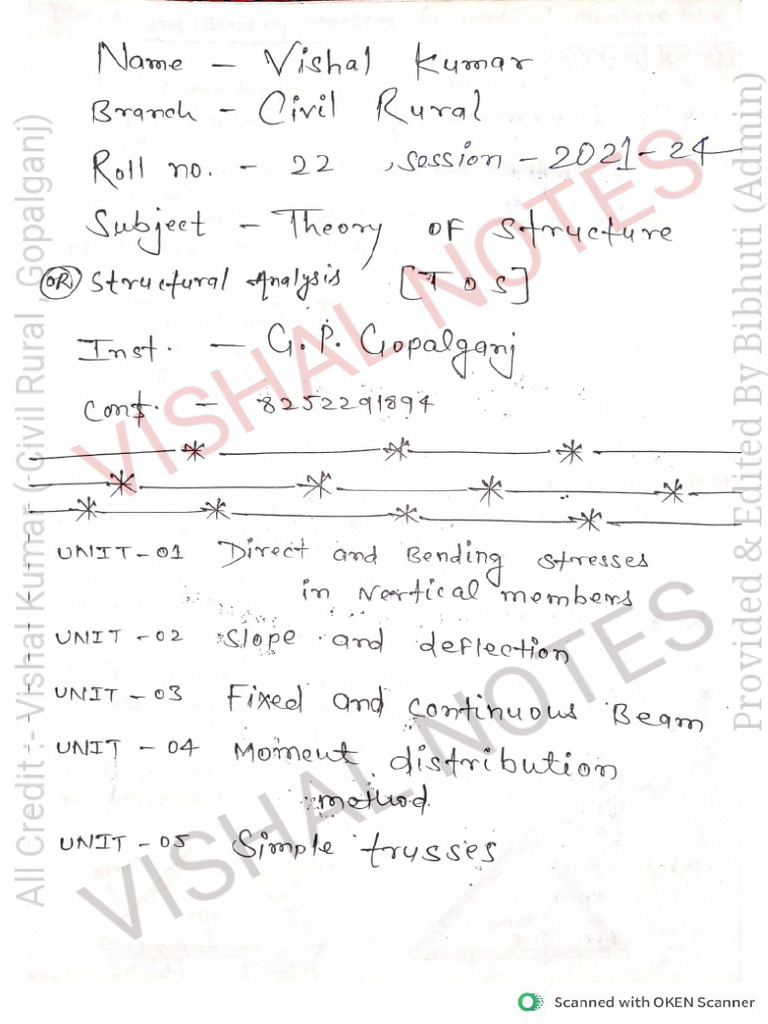 Name - Vishal Kumar
Branch - Civil Rural
Roll no. - 22 , Session - 2021-24
Subject - Theory of Structure
(OR) Structural Analysis [T O S]
Inst. - G.P. Gopalganj
Cont. - 8252291894
UNIT-01 Direct and Bending stresses
in Vertical members
UNIT-02 Slope and deflection
UNIT-03 Fixed and Continuous Beam
UNIT-04 Moment distribution
method
UNIT-05 Simple trusses
VISHAL NOTES
VISHAL NOTES
All Credit :- Vishal Kumar (-Civil Rural , Gopalganj)
Provided & Edited By Bibhuti (Admin)
Scanned with OKEN Scanner